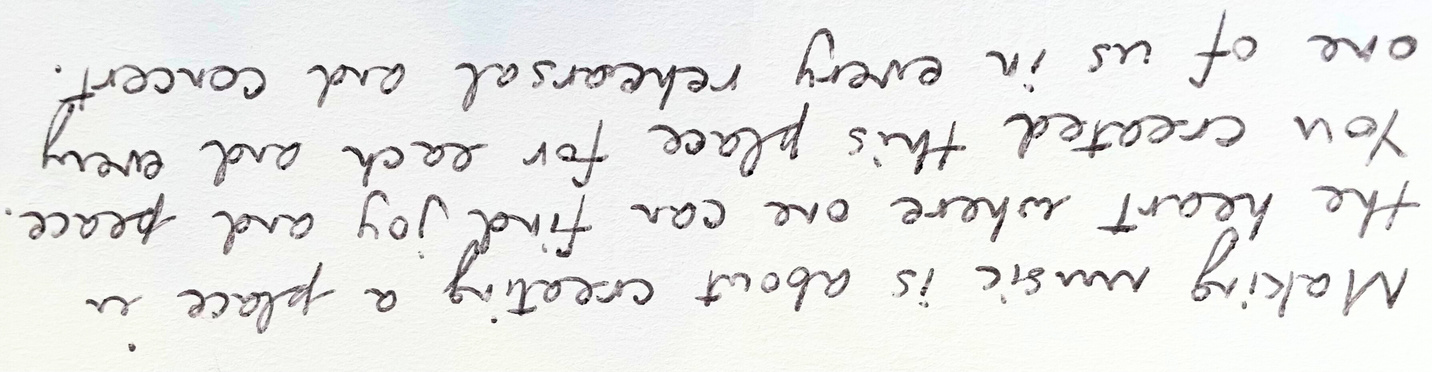 Making music is about creating a place in
the heart where one can find joy and peace.
You created this place for each and every
one of us in every rehearsal and concert.